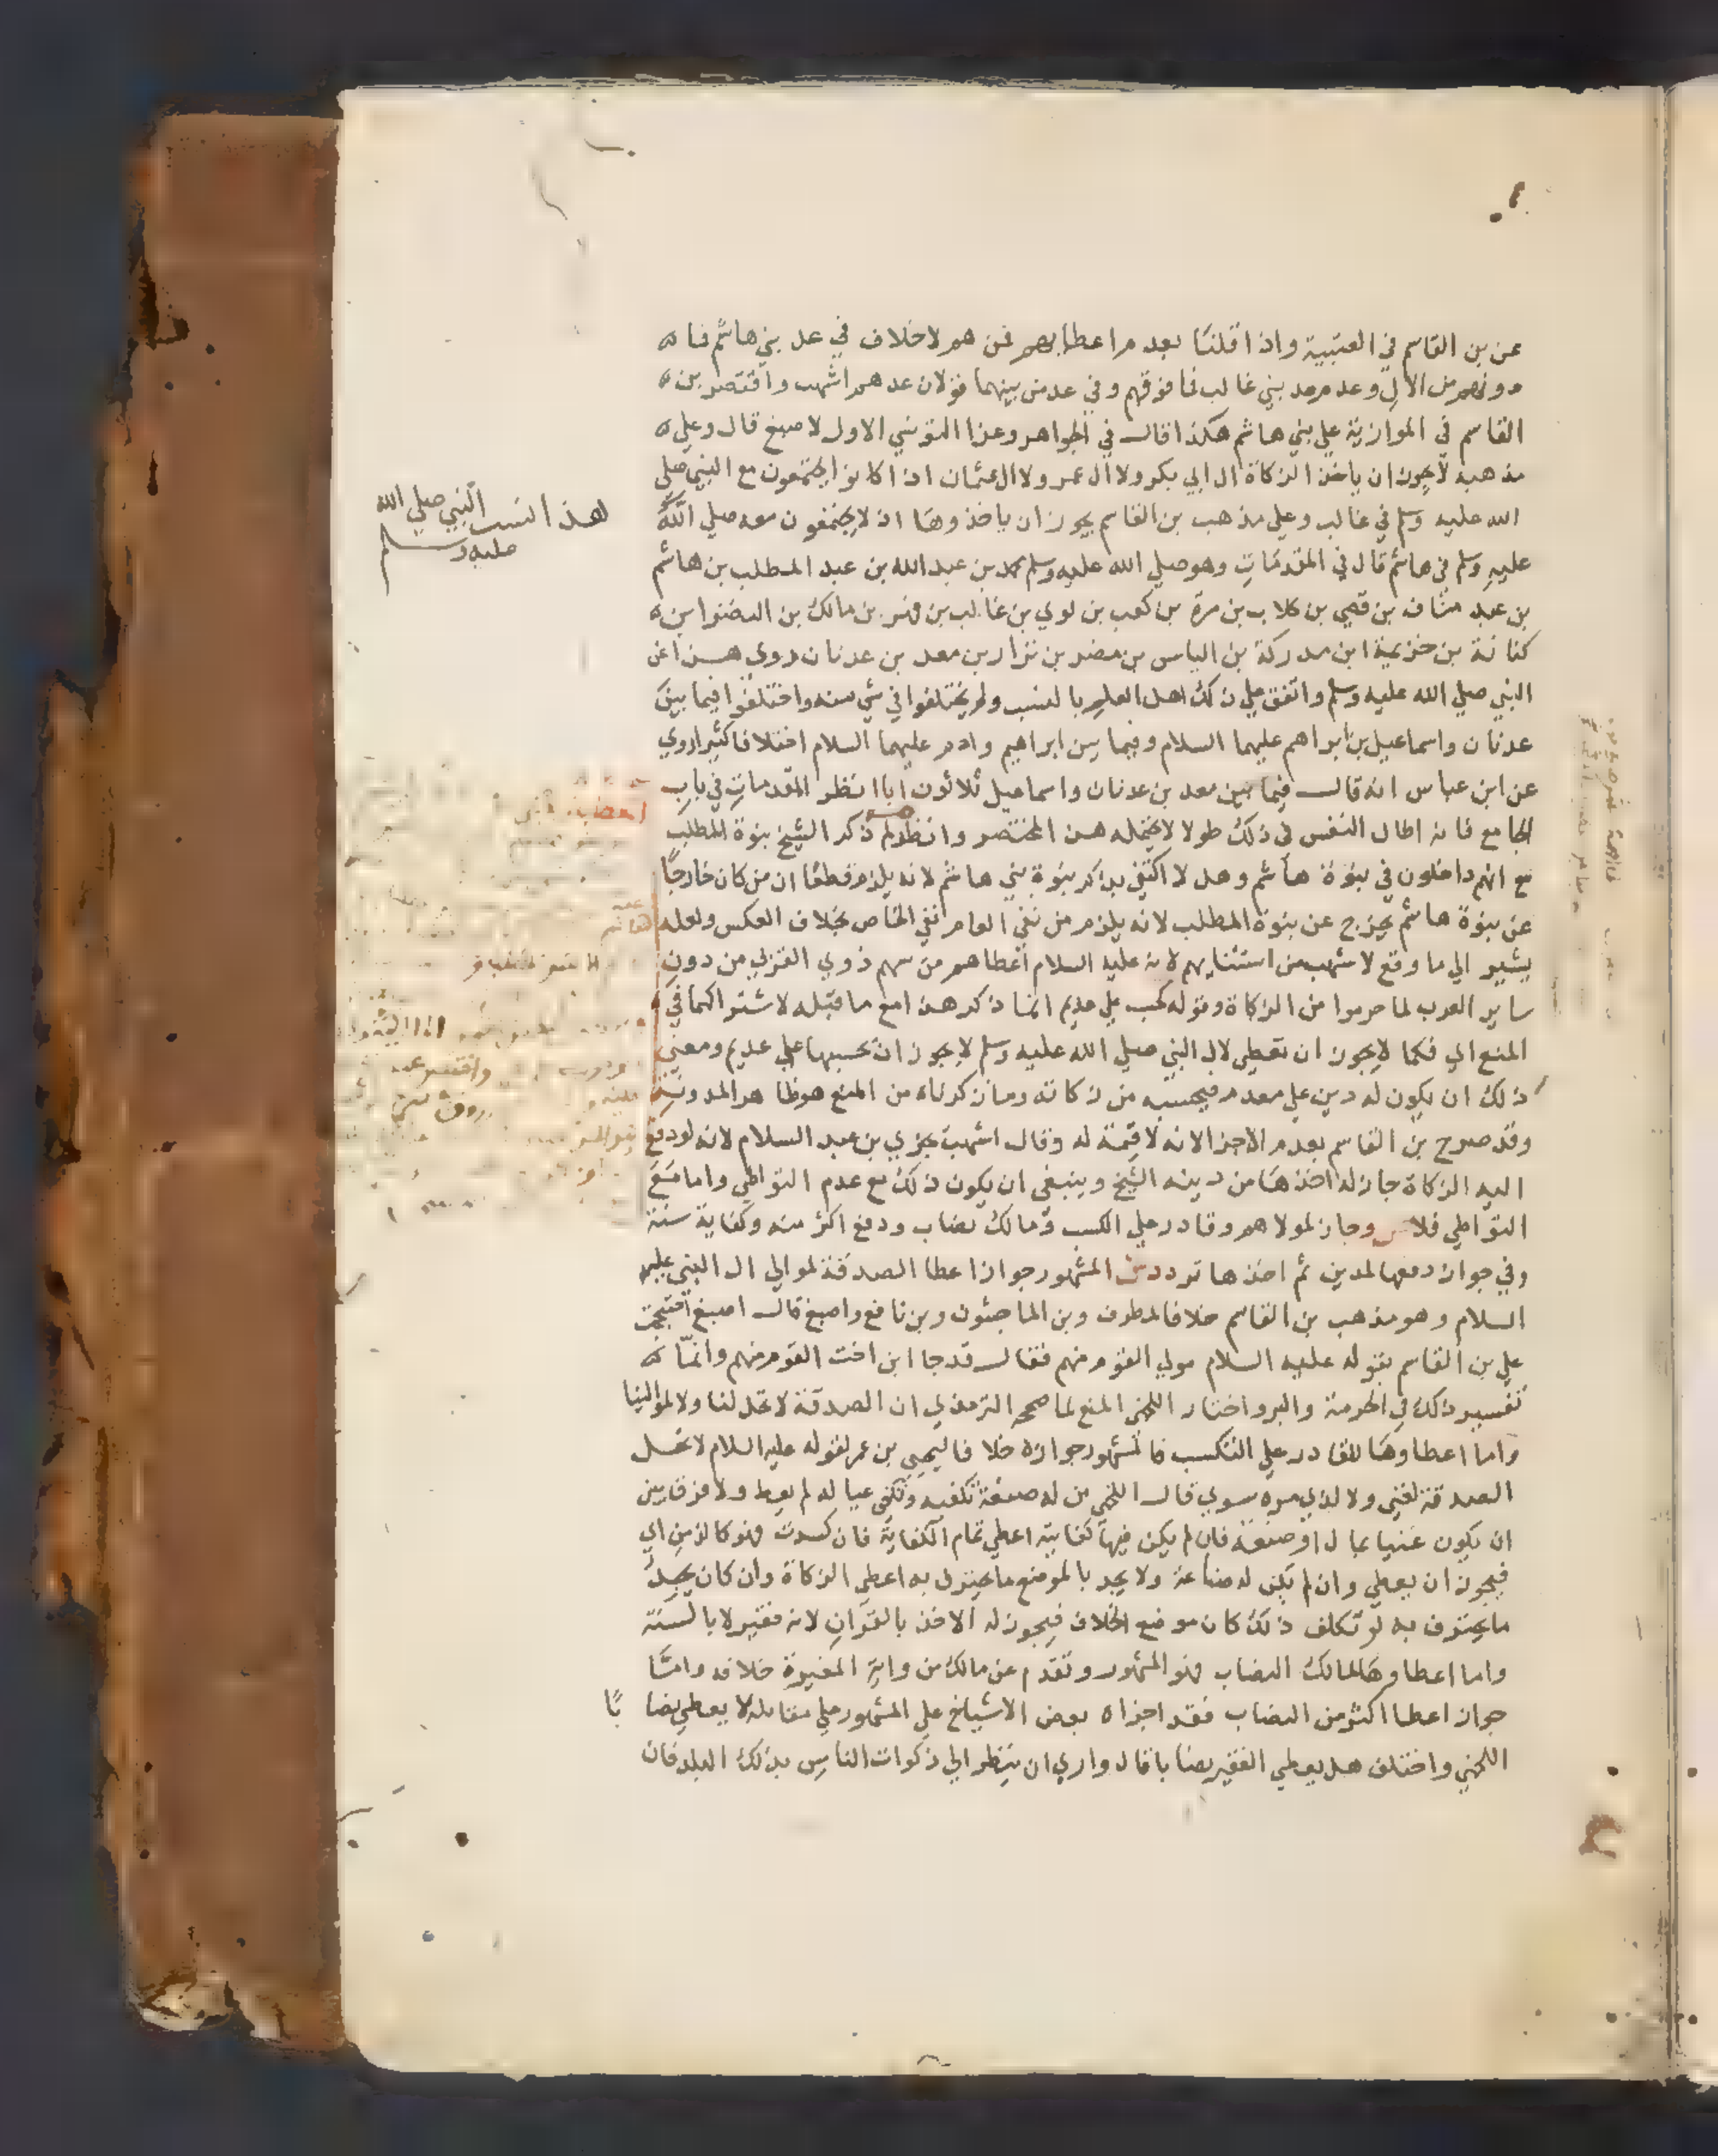 عن بن القاسم في العتبية واذا قلنا بعدم اعطايهم فمن هم لا خلاف في عد بني هاشم فما
دونهم من الال وعدم عد بني غالب فما فوقهم وفي عد من بينهما قولان عدهم اشهب واقتصر بن
القاسم في الموازية علي بني هاشم هكذا قال في الجواهر وعزا التونسي الاول لاصبغ قال وعلي
مذهبه لا يجوز ان ياخذ الزكاة ال ابي بكر ولا ال عمر ولا ال عثمان اذا كانوا يجتمعون مع النبي صلي
الله عليه وسلم في غالب وعلي مذهب بن القاسم يجوز ان ياخذوها اذ لا يجتمعون معه صلي الله
عليه وسلم في هاشم قال في المقدمات وهو صلي الله عليه وسلم محمد بن عبد الله بن عبد المطلب بن هاشم
بن عبد مناف بن قصي بن كلاب بن مرة بن كعب بن لوي بن غالب بن فهر بن مالك بن النضر ابن
كنانة بن خزيمة ابن مدركة بن الياس بن مضر بن نزار بن معد بن عدنان روي هذا عن
النبي صلي الله عليه وسلم واتفق علي ذلك اهل العلم بالنسب ولم يختلفوا في شي منه واختلفوا فيما بين
عدنان واسماعيل بن ابراهم عليهما السلام وفيما بين ابراهيم وادم عليهما السلام اختلافا كثيرا روي
عن ابن عباس انه قال فيما بين معد بن عدنان واسماعيل ثلاثون ابا انظر المقدمات في باب
الجامع فانه اطال النفس في ذلك طولا لا يحتمله هذا المختصر وانظر لم ذكر الشيخ بنوة المطلب
مع انهم داخلون في بنوة هاشم وهل لا اكتفي بذكر بنوة بني هاشم لانه يلزم قطعا ان من كان خارجا
عن بنوة هاشم يخرج عن بنوة المطلب لانه يلزم من نفي العام نفي الخاص بخلاف العكس ولعله
يشير الي ما وقع لاشهب من استثنايهم لانه عليه السلام اعطاهم من سهم ذوي القربي من دون
ساير العرب لما حرموا من الزكاة وقوله كحسب علي عديم انما ذكر هذا مع ما قبله لاشتراكهما في
المنع اي فكما لا يجوز ان تعطي لال النبي صلي الله عليه وسلم لا يجوز ان يحسبها علي عديم ومعني
ذلك ان يكون له دين علي معدم فيحسبه من زكاته وما ذكرناه من المنع هو ظاهر المدونة
وقد صرح بن القاسم بعدم الاجزا لانه لا قيمة له وقال اشهب يجزي بن عبد السلام لانه لو دفع
اليه الزكاة جاز له اخذها من دينه الشيخ وينبغي ان يكون ذلك مع عدم التواطي واما مع
التواطي فلا وجاز لمولاهم وقادر علي الكسب ومالك نصاب ودفع اكثر منه وكفاية سنة
وفي جواز دفعها لمدين ثم اخذها تردد المشهور جواز اعطا الصدقة لموالي ال النبي عليه
السلام وهو مذهب بن القاسم خلافا لمطرف وبن الماجشون وبن نافع واصبغ قال اصبغ احتججت
علي بن القاسم بقوله عليه السلام مولي القوم منهم فقال قد جا ابن اخت القوم منهم وانما
تفسير ذلك في الحرمة والبر واختار اللخمي المنع لما صححه الترمذي ان الصدقة لا تحل لنا ولا لموالينا
واما اعطاوها للقادر علي التكسب فالمشهور جوازه خلافا ليحيي بن عمر لقوله عليه السلام لا تحل
الصدقة لغني ولا لذي مرة سوي قال اللخمي من له صنعة تكفيه وتكفي عياله لم يعط ولا فرق بين
ان يكون غنيا بمال او صنعة فان لم يكن فيها كفاية اعطي تمام الكفاية فان كسدت فهو كالزمن اي
فيجوز ان يعطي وان لم يكن له صناعة ولا يجد بالموضع ما يحترف به اعطي الزكاة وان كان يجد
ما يحترف به لو تكلف ذلك كان موضع الخلاف فيجوز له الاخذ بالقران لانه فقير لا بالسنة
واما اعطاوها لمالك النصاب فهو المشهور وتقدم عن مالك من رواية المغيرة خلافه واما
جواز اعطا اكثر من النصاب فقد اجزاه بعض الاشياخ علي المشهور علي مقابله لا يعطي نصابا
اللخمي واختلف هل يعطي الفقير نصابا قال واري ان ينظر الي زكوات الناس بذلك البلد فان
هذا النسب النبي صلي الله
عليه وسلم